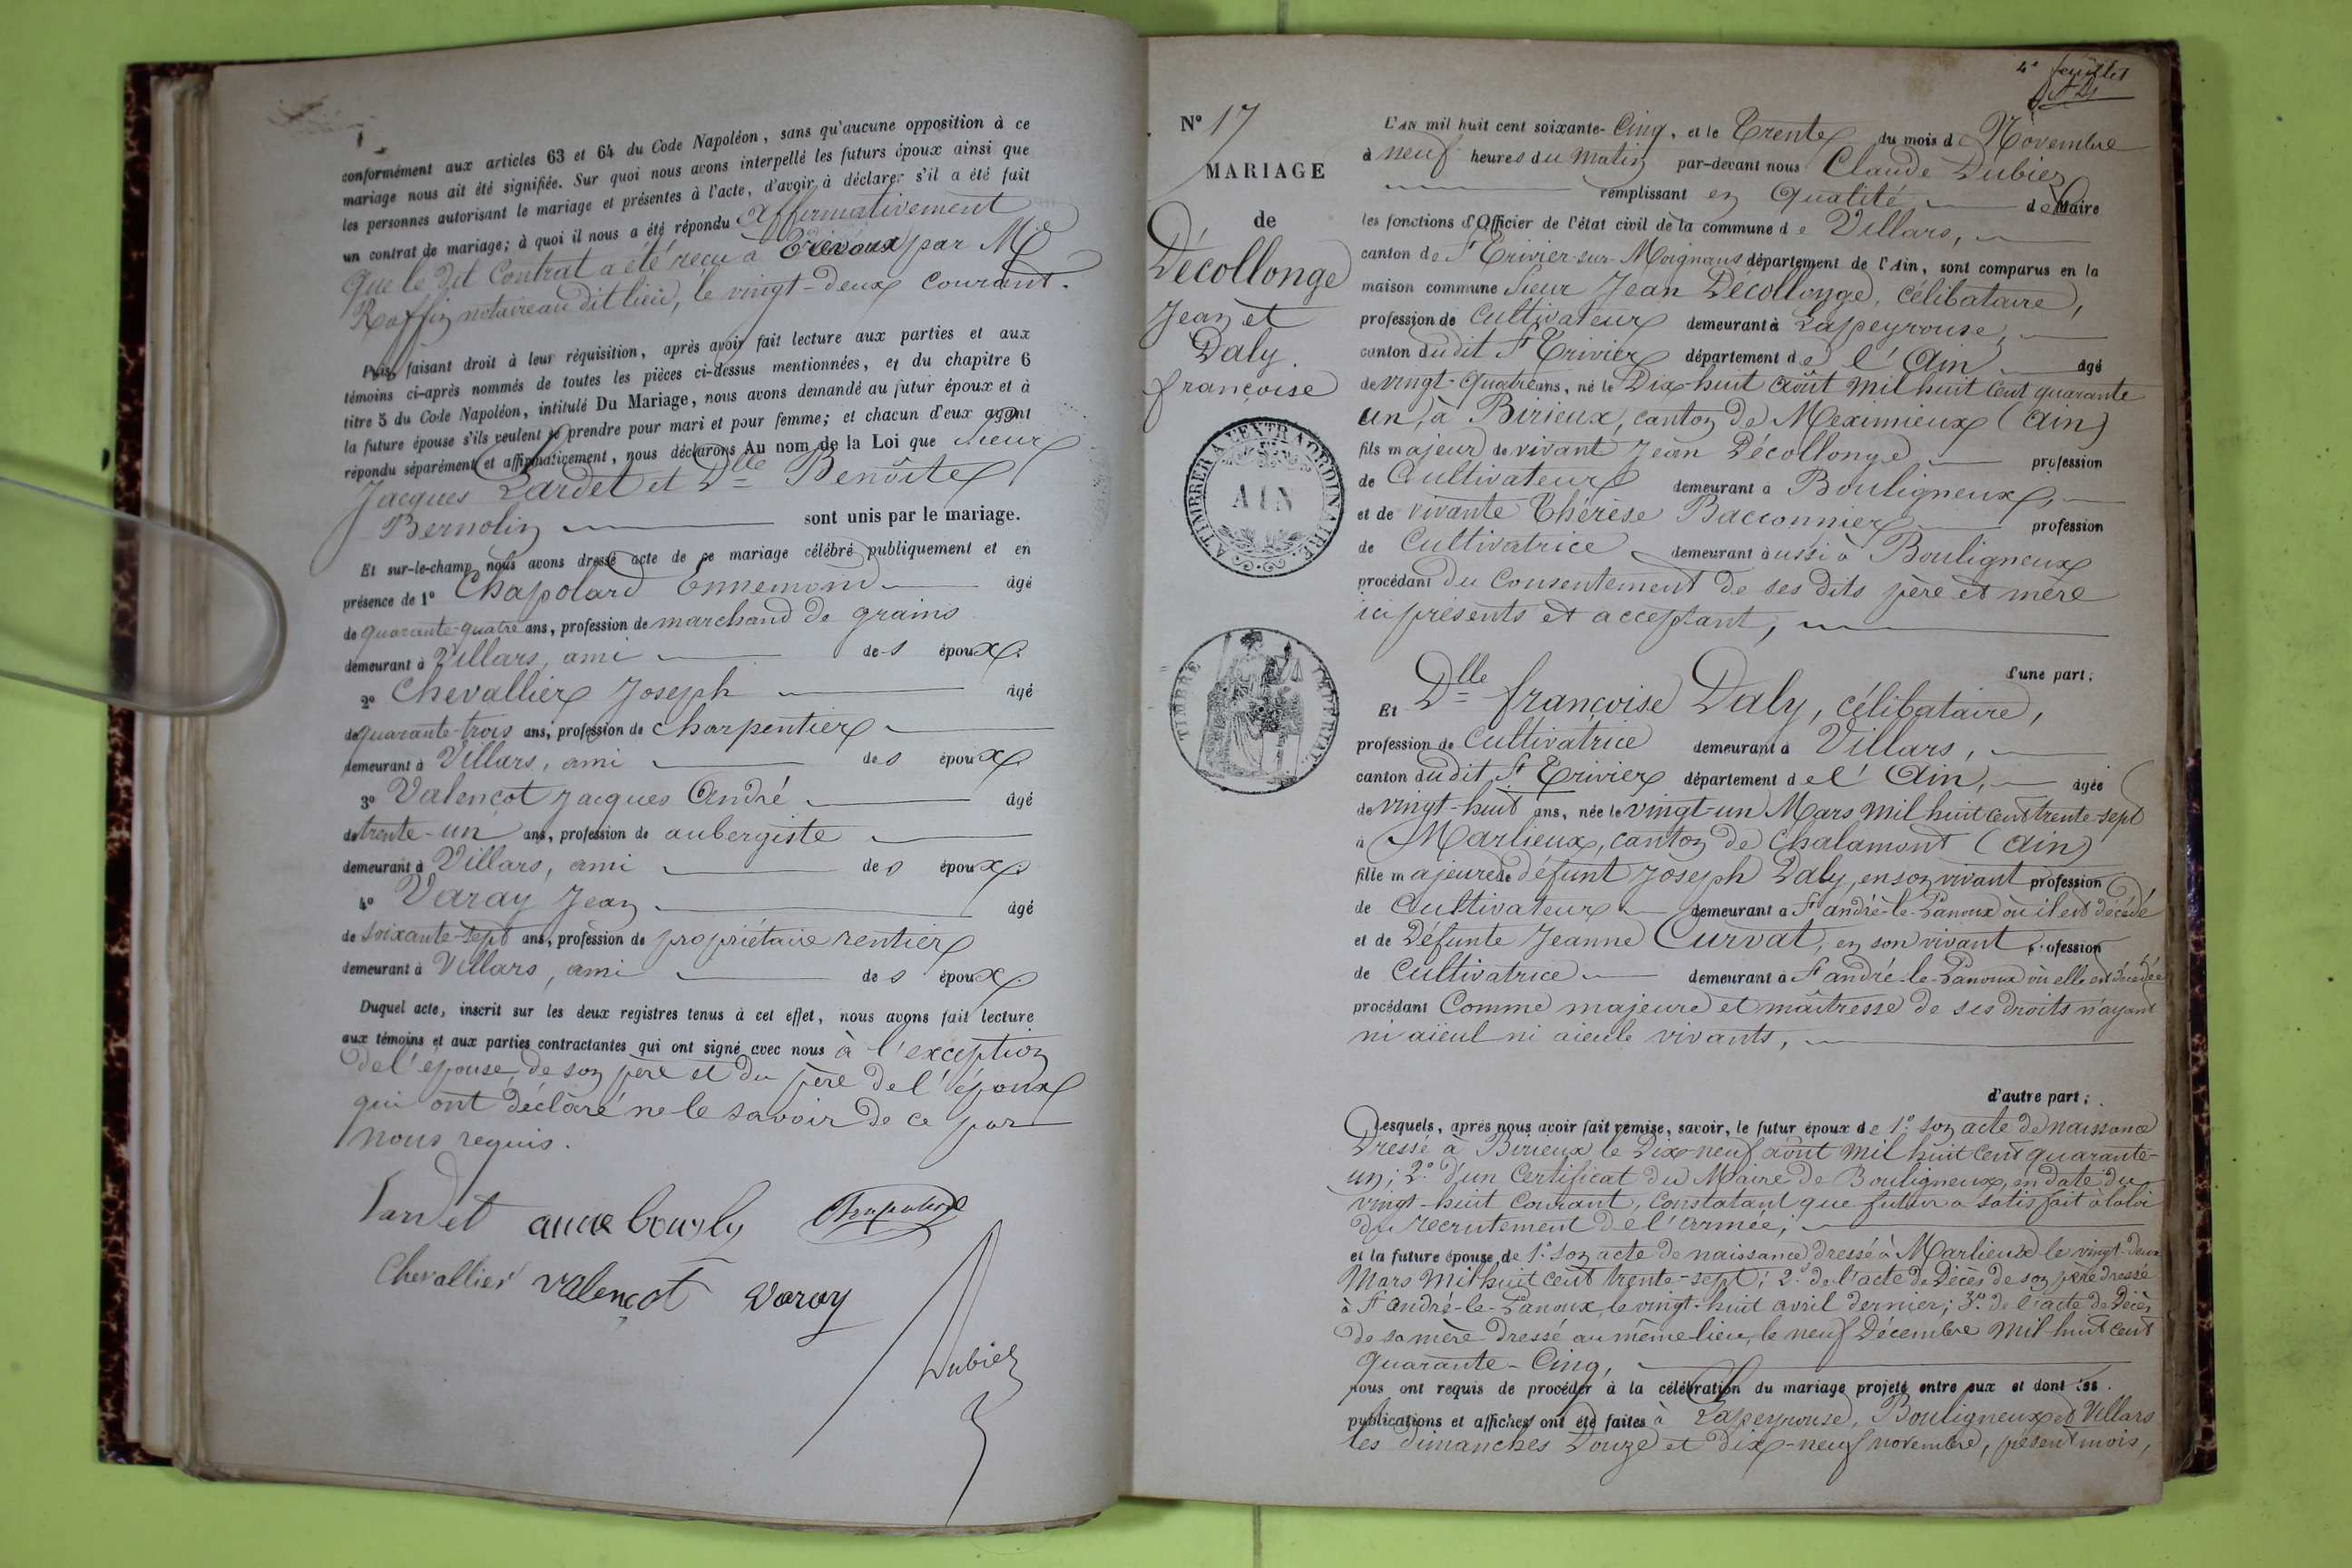 conformément aux articles 63 et 64 du Code Napoléon, sans qu'aucune opposition à ce
mariage nous ait été signifiée. Sur quoi nous avons interpellé les futurs époux ainsi que
les personnes autorisant le mariage et présentes à l'acte, d'avoir à déclarer s'il a été fait
un contrat de mariage; à quoi il nous a été répondu affirmativement
que le dit Contrat a été reçu à Trévoux par Me
Raffin notaire au dit lieu, le vingt-deux courant.
Puis, faisant droit à leur réquisition, après avoir fait lecture aux parties et aux
témoins ci-après nommés de toutes les pièces ci-dessus mentionnées, et du chapitre 6
titre 5 du Code Napoléon, intitulé Du Mariage, nous avons demandé au futur époux et à
la future épouse s'ils veulent se prendre pour mari et pour femme; et chacun d'eux ayant
répondu séparément et affirmativement, nous déclarons Au nom de la Loi que Sieur
Jacques Lardet et Dlle Benoîte
Bernolin sont unis par le mariage.
Et sur-le-champ nous avons dressé acte de ce mariage célébré publiquement et en
présence de 1° Chapolard Ennemond âgé
de quarante-quatre ans, profession de marchand de grains
demeurant à Villars, ami des époux.
2° Chevallier Joseph âgé
de quarante-trois ans, profession de charpentier
demeurant à Villars, ami des époux
3° Valençot Jacques André âgé
de trente-un ans, profession de aubergiste
demeurant à Villars, ami des époux.
4° Varay Jean âgé
de soixante-sept ans, profession de propriétaire rentier
demeurant à Villars, ami des époux
Duquel acte, inscrit sur les deux registres tenus à cet effet, nous avons fait lecture
aux témoins et aux parties contractantes qui ont signé avec nous à l'exception
de l'épouse, de son père et du père de l'époux
qui ont déclaré ne le savoir de ce par
nous requis.
Lardet anne bourly Chapolard
Chevallier valençot varay
Dubiez
4e feuillet
N° 17
MARIAGE
de
Décollonge
Jean et
Daly
françoise
A TIMBRER A L'EXTRAORDINAIRE
AIN
TIMBRE IMPERIAL
L'AN mil huit cent soixante-Cinq, et le Trente du mois de Novembre
à neuf heures du matin par-devant nous Claude Dubiez
remplissant en qualité de Maire
les fonctions d'Officier de l'état civil de la commune de Villars,
canton de St Trivier-sur-Moignans département de l'Ain, sont comparus en la
maison commune Sieur Jean Décollonge, célibataire,
profession de Cultivateur demeurant à Lapeyrouse,
canton dudit St Trivier département de l'Ain âgé
de vingt-quatre ans, né le Dix-huit août mil huit cent quarante
un, à Birieux, canton de Meximieux (Ain)
fils majeur de vivant Jean Décollonge profession
de Cultivateur demeurant à Bouligneux,
et de vivante Thérèse Bacconnier profession
de Cultivatrice demeurant aussi à Bouligneux
procédant du consentement de ses dits père et mère
ici présents et acceptant,
d'une part;
Et Dlle françoise Daly, célibataire,
profession de Cultivatrice demeurant à Villars,
canton dudit St Trivier département de l'Ain, âgée
de vingt-huit ans, née le vingt-un Mars mil huit cent trente-sept
à Marlieux, canton de Chalamont (Ain)
fille majeure de défunt Joseph Daly, en son vivant profession
de Cultivateur demeurant à St andré-le-Panoux où il est décédé
et de Défunte Jeanne Curvat, en son vivant profession
de Cultivatrice demeurant à St andré-le-Panoux où elle est décédée
procédant Comme majeure et maîtresse de ses droits n'ayant
ni aïeul ni aïeule vivants,
d'autre part;
Lesquels, après nous avoir fait remise, savoir, le futur époux de 1° son acte de naissance
Dressé à Birieux le Dix-neuf août mil huit cent quarante-
un; 2° d'un Certificat du Maire de Bouligneux, en date du
vingt-huit Courant, constatant que futur a satisfait à la loi
du recrutement de l'armée;
et la future épouse de 1° son acte de naissance dressé à Marlieux le vingt-deux
Mars mil huit cent trente-sept; 2° de l'acte de Décès de son père dressé
à St andré-le-Panoux, le vingt-huit avril dernier; 3° de l'acte de Décès
de sa mère dressé au même lieu, le neuf Décembre mil huit cent
quarante-Cinq,
nous ont requis de procéder à la célébration du mariage projeté entre eux et dont les
publications et affiches ont été faites à Lapeyrouse, Bouligneux et Villars
les dimanches Douze et dix-neuf novembre, présent mois,